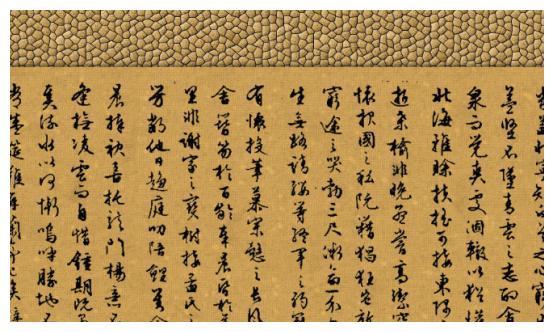 益堅不墜青雲之志酌貪
泉而覺爽處涸轍以猶懽
北海雖賒扶搖可接東隅
逝桑榆非晚孟嘗高潔空
懷報國之私阮籍猖狂豈效
窮途之哭勃三尺微命一介
生無路請纓等終軍之弱冠
有懷投筆慕宗愨之長風
舍簪笏於百齡奉晨昏於
里非謝家之寶樹接孟氏之
芳鄰他日趨庭叨陪鯉對今
晨捧袂喜托龍門楊意不
逢撫凌雲而自惜鍾期既
奏流水以何慚嗚呼勝地不
常盛筵難再蘭亭已矣